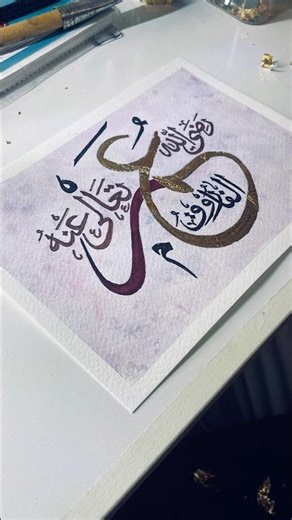 عمر
الفاروق
رضي الله
تعالى عنه